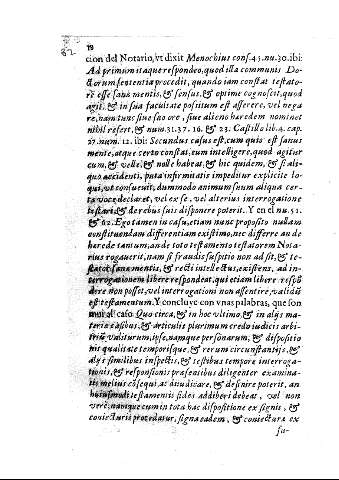 19
82
cion del Notario, vt dixit Menochius cons. 43. nu. 30. ibi:
Ad primum itaque respondeo, quod illa communis Do-
ctorum sententia procedit, quando iam constat testato-
rẽ esse sanæ mentis, & sensus, & optime cognoscit, quod
agit. & in sua facultate possitum est asserere, vel nega
re, nam tunc siue suo ore, siue alieno hæredem nominet
nihil refert, & num. 31. 37. 16. & 23. Castillo lib. 4. cap.
27. num. 12. ibi: Secundus casus est, cum quis est sanus
mente, atque certo constat, eum intelligere, quod agitur
cum, & velle, & nolle habeat, & hic quidem, & si ali-
quo accidenti, puta infirmitatis impeditur explicite lo-
qui, vt consueuit, dummodo animum suum aliqua cer-
ta voce declaret, vel ex se, vel alterius interrogatione
testari, & de rebus suis disponere poterit. Y en el nu. 52.
62. Ego tamen in casu, etiam nunc proposito nullam
constituendam differentiam existimo, nec differre an de
hærede tantum, an de toto testamento testatorem Nota-
rius rogauerit, nam si fraudis suspitio non adsit, & te-
stator sanæ mentis, & recti intellectus, existens, ad in-
terrogationem libere respondeat, qui etiam libere respõ
dere non posset, vel interrogationi non assentire, validũ
est testamentum. Y concluye con vnas palabras, que son
muy al caso Quo circa, & in hoc vltimo, & in alijs ma-
teriæ casibus, & articulis plurimum credo iudicis arbi-
trium valiturum, ipse, namque personarum, & dispositio
nis qualitate temporisque, & rerum circunstantijs, &
alijs similibus inspectis, & testibus tempore interroga-
tionis, & responsionis præsentibus diligenter examina-
tis melius cõsequi, ac diiudicare, & definire poterit, an
huiusmodi testamentis fides adhiberi debeat, vel non
verè, namque cum in tota hac dispositione ex signis, &
coniecturis procedatur, signa eadem, & coniecturæ ex
su-